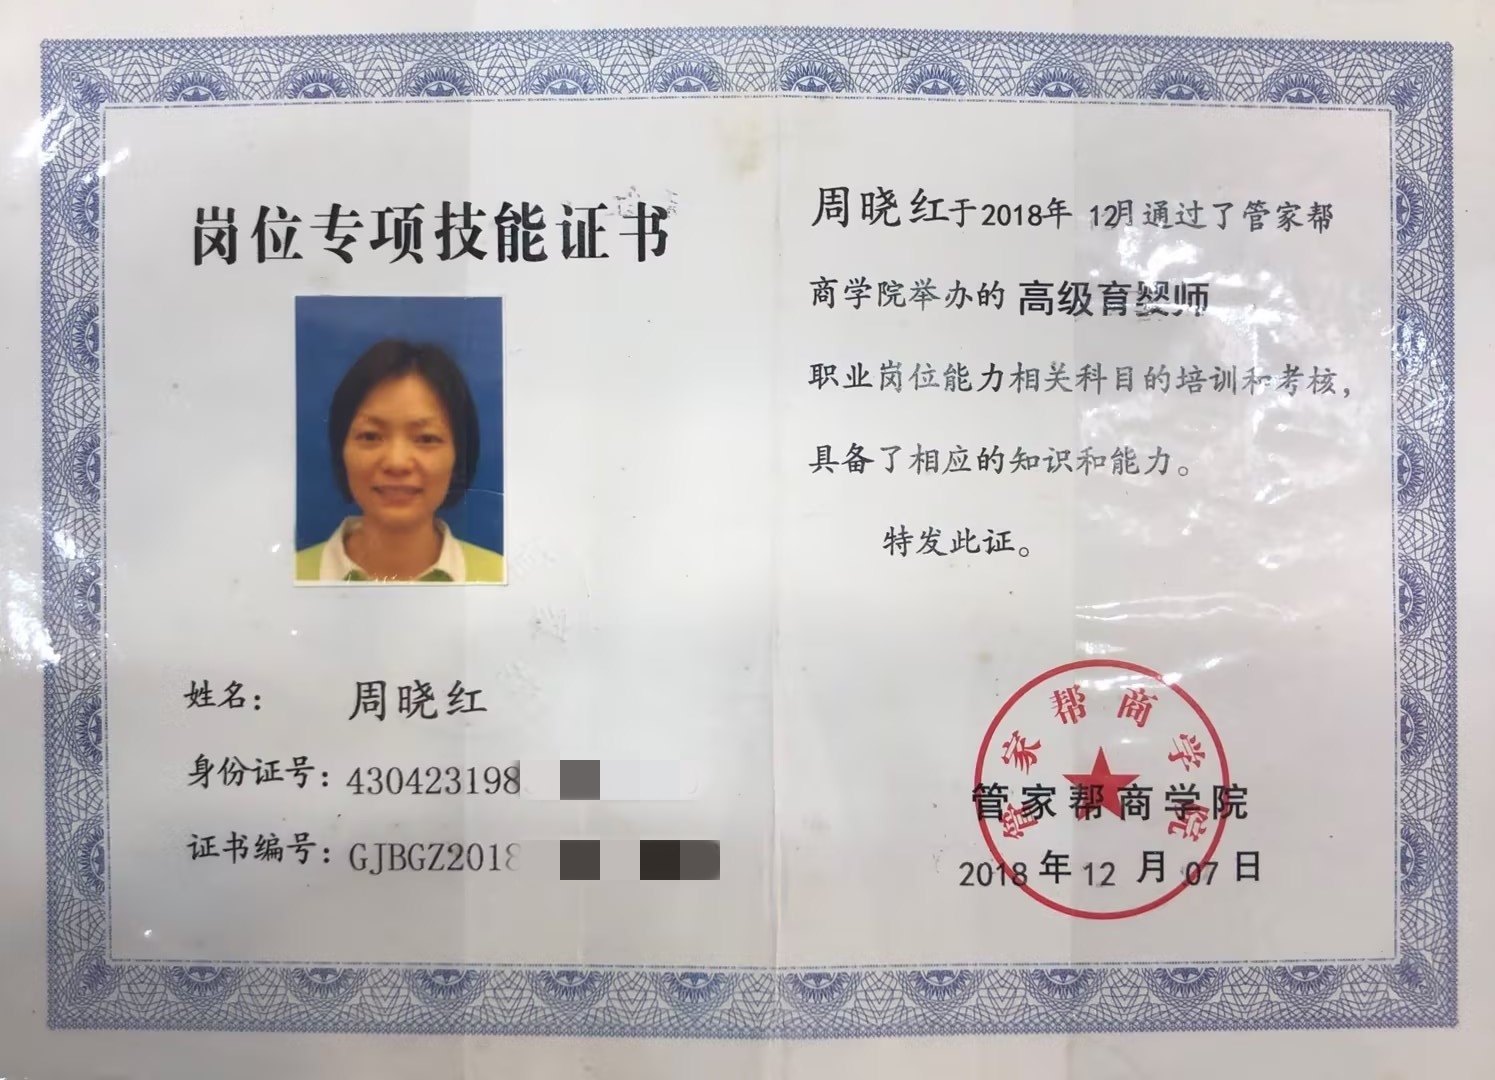 岗位专项技能证书
姓名： 周晓红
身份证号：430423198
证书编号：GJBGZ2018
周晓红于2018年 12月通过了管家帮
商学院举办的 高级育婴师
职业岗位能力相关科目的培训和考核，
具备了相应的知识和能力。
特发此证。
管家帮商学院
管家帮商学院
2018 年 12 月 07 日